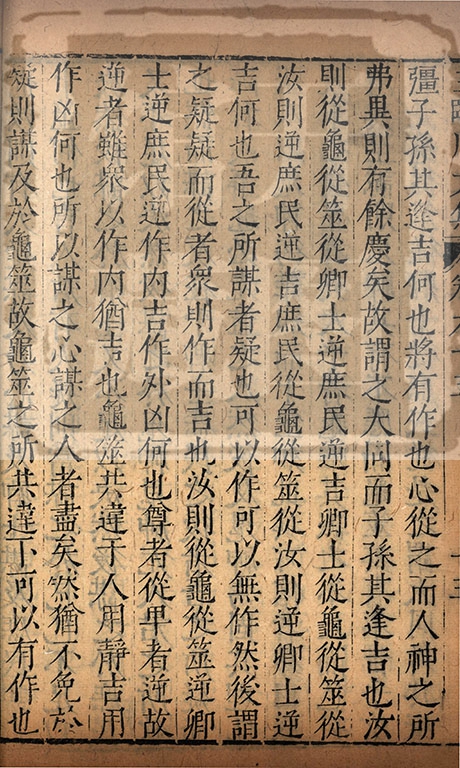 彊子孫其逢吉何也將有作也心從之而人神之所
弗異則有餘慶矣故謂之大同而子孫其逢吉也汝
則從龜從筮從卿士逆庶民逆吉卿士從龜從筮從
汝則逆庶民逆吉庶民從龜從筮從汝則逆卿士逆
吉何也吾之所謀者疑也可以作可以無作然後謂
之疑疑而從者衆則作而吉也汝則從龜從筮逆卿
士逆庶民逆作內吉作外凶何也尊者從卑者逆故
逆者雖衆以作內猶吉也龜筮共違于人用靜吉用
作凶何也所以謀之心謀之人者盡矣然猶不免於
疑則謀及於龜筮故龜筮之所共違不可以有作也